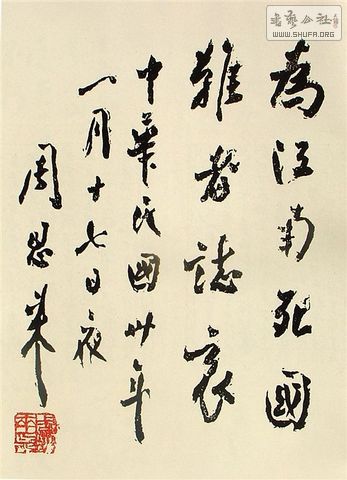 为江南死國
難者誌哀
中華民國卅年
一月十七日夜
周恩来
書藝公社
WWW.SHUFA.ORG